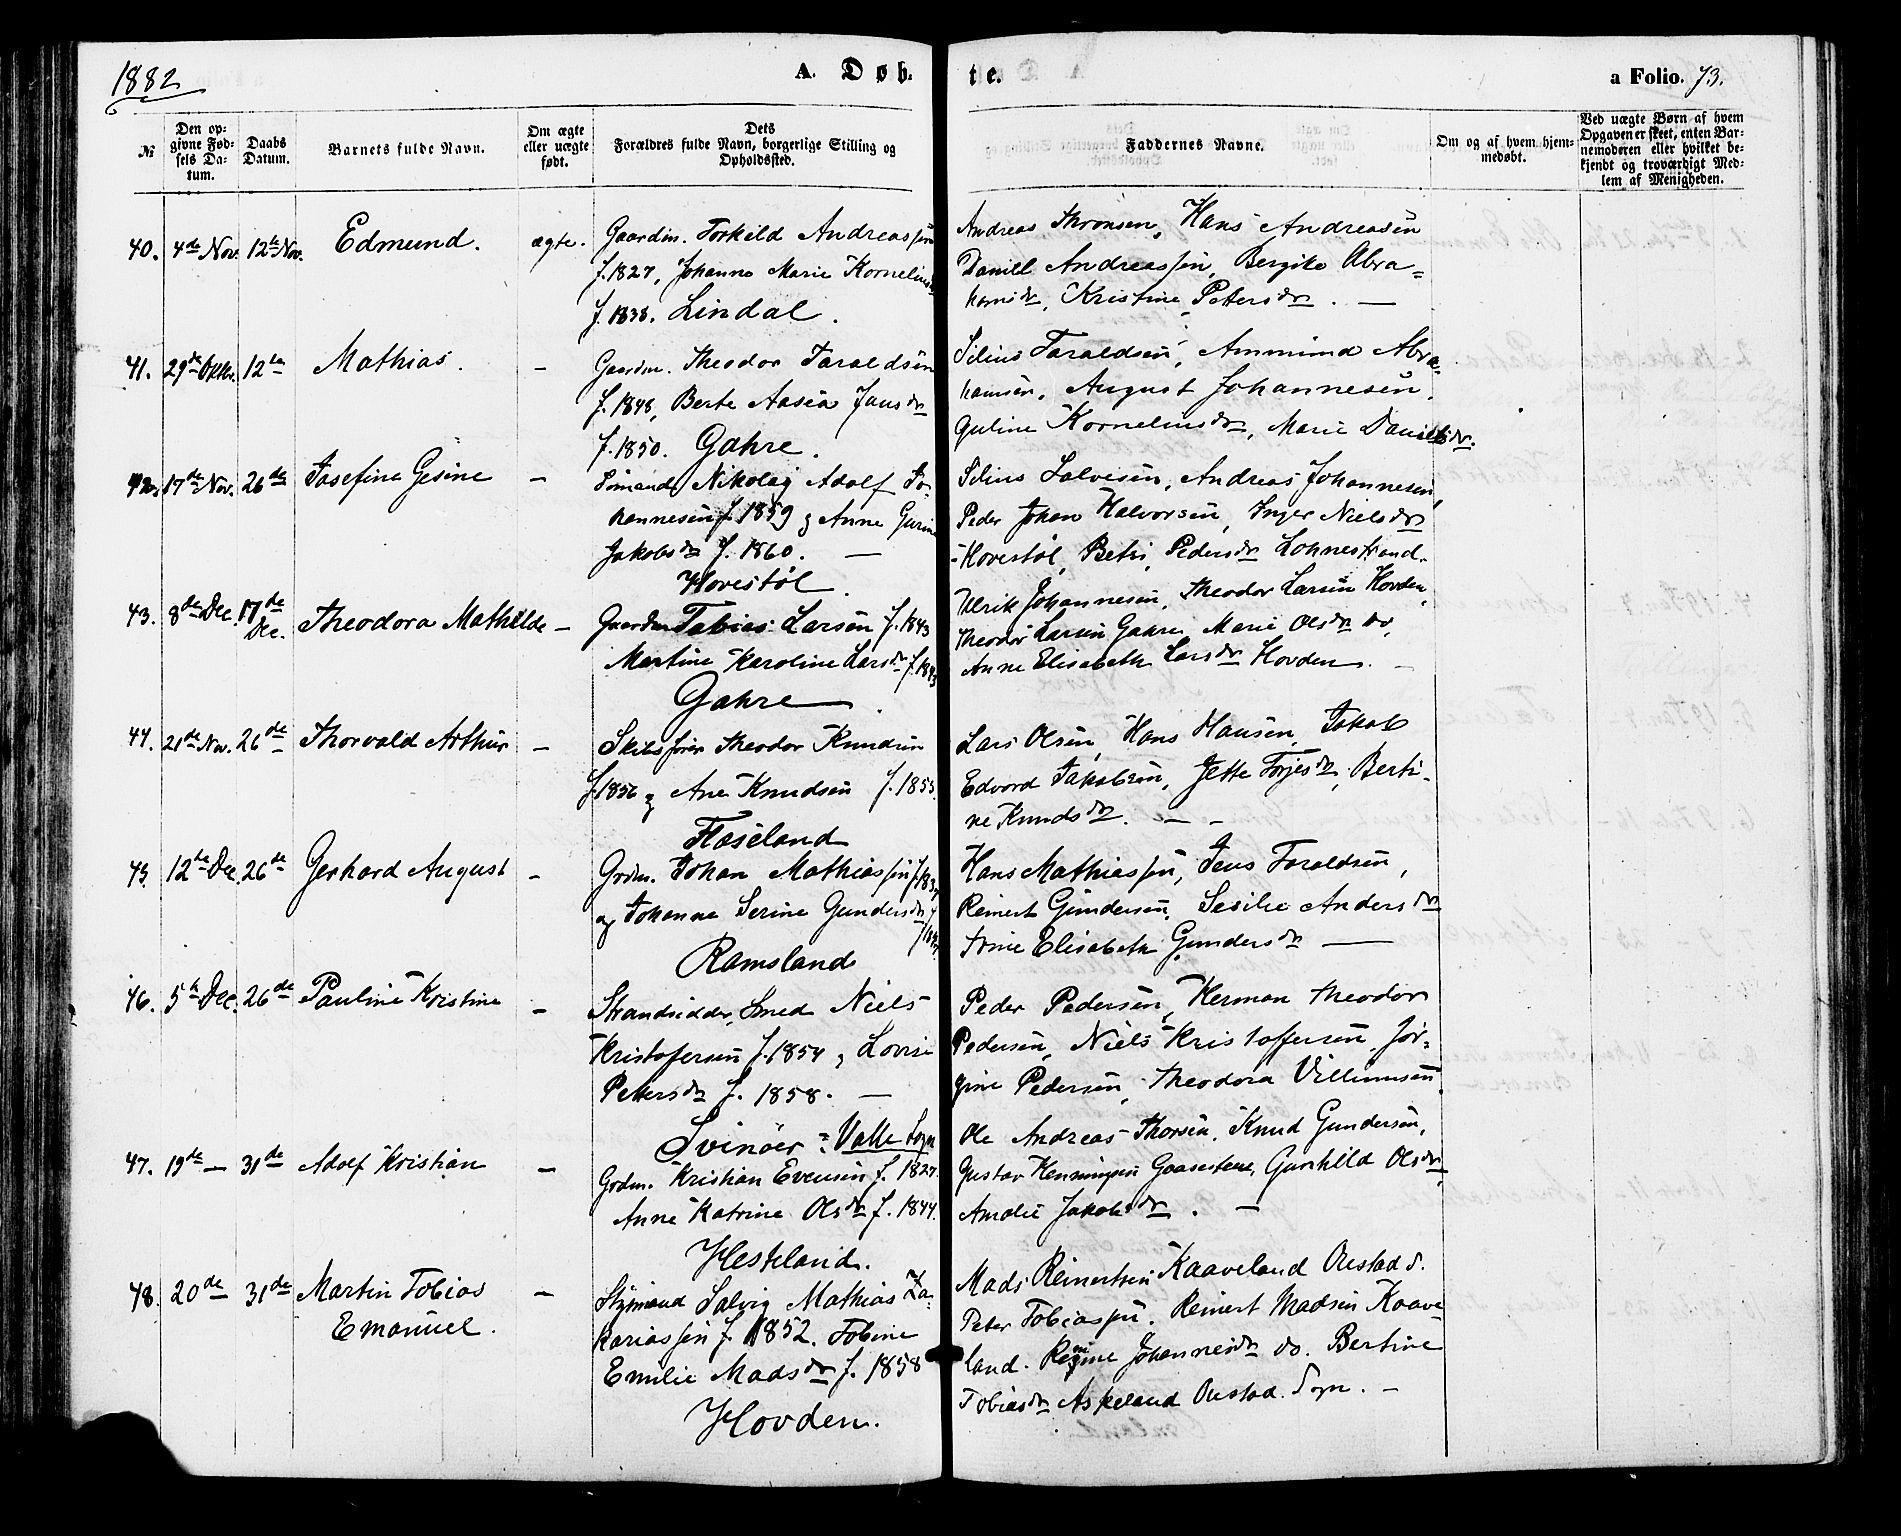 1882
A. Døb-
te.
a Folio. 73.
№
Den op-
givne Fød-
sels Da-
tum.
Daabs
Datum.
Barnets fulde Navn.
Om ægte
eller uægte
født.
Dets
Forældres fulde Navn, borgerlige Stilling og
Opholdssted.
Faddernes Navne.
Om og af hvem hjem-
medøbt.
Ved uægte Børn af hvem
Opgaven er skeet, enten Bar-
nemoderen eller hvilket be-
kjendt og troværdigt Med-
lem af Menigheden.
40. 4de Nov. 12te Nov. Edmund. ægte.
Gaardm. Torkild Andreassen
f. 1827, Johanne Marie Kornelius
f. 1838. Lindal.
Andreas Thronsen, Hans Andreasen
Daniel Andreassen, Bergite Abra-
hamsdr, Kristine Petersdr. —
41. 29de Oktbr. 12te Mathias. –
Gaardm. Theodor Taraldsen
f. 1848, Berte Aasea Jansdr
f. 1850. Gahre.
Silius Taraldsen, Ammund Abra-
hamsen, August Johannesen,
Guline Korneliusdr, Marie Danielsdr.
42. 17de Nov. 26de Josefine Gesine –
Sømand Nikolay Adolf Jo-
hannesen f. 1859 & Anne Gurine
Jakobsdr f. 1860. —
Hovestøl.
Silius Salvesen, Andreas Johannesen,
Peder Johan Halvorsen, Inger Nielsdr
Hovestøl, Petersdr Lohnestrand.
43. 8de Dec. 17de
Dec. Theodora Mathilde –
Gaardm Tobias Larsen f. 1843
Martine Karoline Larsdr f. 1843
Gahre
Ulrik Johannesen, Theodor Larsen Hovden,
Theodor Larsen Gahre, Marie Olsdr do,
Anne Elisabeth Larsdr Hovden. –
44. 21de Nov. 26de Thorvald Arthur –
Skibsfører Theodor Knudsen
f. 1856 & Ane Knudsen f. 1853.
Flaseland
Lars Olsen, Hans Hansen, Jakob
Edvard Jakobsen, Jette Torjesdr, Berti-
ne Knudsdr. – –
45. 12te Dec. 26de Gerhard August –
Grdm. Johan Mathiassen
og Johanne Serine Gundersdr
Ramsland
Hans Mathiassen, Jens Taraldsen,
Reinert Gundersen, Sesilie Andersdr
Trine Elisabeth Gundersdr —
46. 5te Dec. 26de Pauline Kristine –
Strandsidder, Smed Niels
Kristofersen f. 1854 & Lovise
Petersdr f. 1858. —
Svinøer – Valle Sogn
Peder Pedersen, Herman Theodor
Pedersen, Niels Kristoffersen, Jør-
gine Pedersen, Theodora Villumsen.
47. 19de – 31de Adolf Kristian –
Grdm. Kristian Evensen f. 1827.
Anne Katrine Olsdr f. 1844.
Hesteland.
Ole Andreas Thorsen, Knud Gundersen,
Gustav Henningsen, Gunhild Olsdr,
Amalie Jakobsdr. –
48. 20de 31de Martin Tobias
Emanuel. –
Styrmand Salvig Mathias Za-
kariassen f. 1852. Tobine
Emilie Madsdr f. 1858
Hovden.
Mads Reinertsen Kaaveland Øiestad S.
Peter Tobiassen. Reinert Madsen Kaave-
land. Johannesdr do. Bertine
Tobiasdr Askeland Øiestad Sogn. –